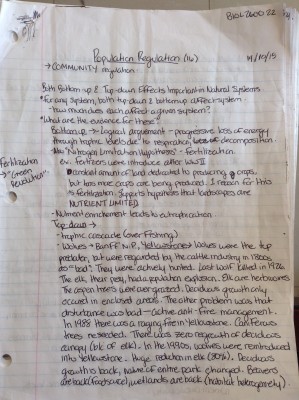 BIOL2600 22
Population Regulation (16)
14/10/15
→ COMMUNITY regulation
Both Bottom up & Top-down Effects Important in Natural Systems
• for any system, both top down & bottom up affect system
- how much does each affect a given system?
• What are the evidence for these?
Bottom up → Logical arguement - progressive loss of energy
through trophic levels due to respiration, decomposition.
"Nitrogen Limitation Hypothesis" - Fertilization.
ex. fertilizers were introduced after WWII
amount of land dedicated to producing crops,
but less more crops are being produced. 1 reason for this
is fertilization. Supports hypothesis that landscapes are
NUTRIENT LIMITED
Fertilization
→ "Green
Revolution"
- Nutrient enrichment leads to eutrophication
Top-down →
- trophic cascade (over fishing)
- Wolves → Banff N.P., Yellowstone: Wolves were the top
predator, but were regarded by the cattle industry in 1800s
as "bad". They were actively hunted. Last wolf killed in 1926
The elk, their prey, had a population explosion. Elk are herbivores
The aspen trees were overgrazed. Deciduous growth only
occured in enclosed areas. The other problem was that
disturbance was bad - active anti-fire management.
In 1988 there was a raging fire in Yellowstone. Coniferous
trees reseeded. There was zero regrowth of deciduous
canopy (b/c of elk). In the 1990s, wolves were reintroduced
into Yellowstone. Huge reduction in elk (80%). Deciduous
growth is back, nature of entire park changed. Beavers
are back (food source), wetlands are back (habitat heterogeneity)